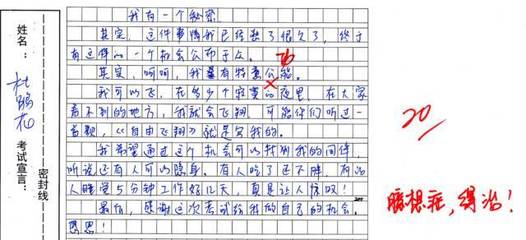 我有一个秘密
其实，这件事情我已经憋了很久了，终于
有这样的一个机会公布于众。
其实，呵呵，我是有特意公能。
功
我可以飞，在多少个寂寞的夜里，在大家
看不到的地方，我就会飞翔，可能你们听过一
首歌，《自由飞翔》就是写我的。
我希望通过这个机会可以找到我的同伴，
听说还有人可以隐身。有人吃了还不胖，有的
人睡觉5分钟工作好几天，真是让人惊叹！
最后，感谢这次考试给我的自己的机会。
思思！
姓名：
考试宣言：
密封线
20
臆想症，得治！